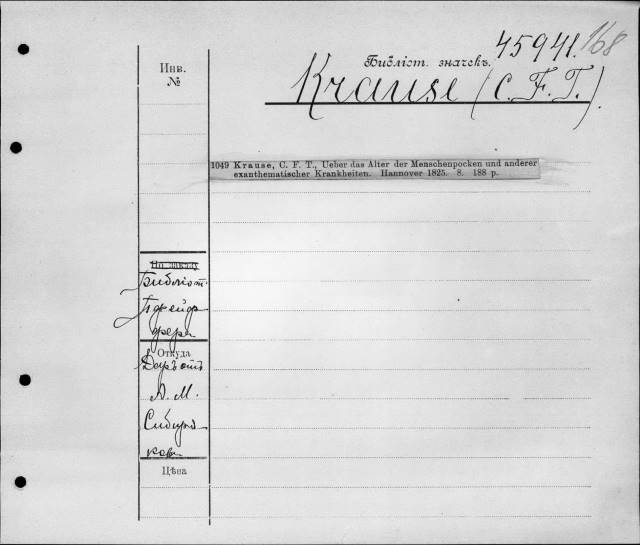 45941/168
Библіот. значекъ.
Krause (C. F. T.).
Инв.
№
1049 Krause, C. F. T., Ueber das Alter der Menschenpocken und anderer
exanthematischer Krankheiten. Hannover 1825. 8. 188 p.
Библіот.
Пфейф
фера
Откуда
Даръ отъ
А. М.
Сибиря
кова
Цѣна